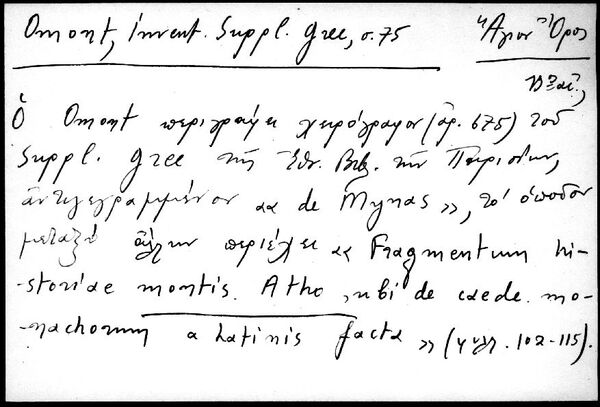 Omont, Invent. Suppl. Grec, σ. 75
Ἅγιον Ὄρος
Ὁ Omont περιγράφει χειρόγραφον (ἀρ. 675) τοῦ
Suppl. Grec τῆς Ἐθν. Βιβ. τῶν Παρισίων,
ἀντιγεγραμμένον « de Mynas », τὸ ὁποῖον
μεταξὺ ἄλλων περιέχει « Fragmentum hi-
-storiae montis Atho, ubi de caede mo-
-nachorum a Latinis facta » (φύλλ. 102-115).